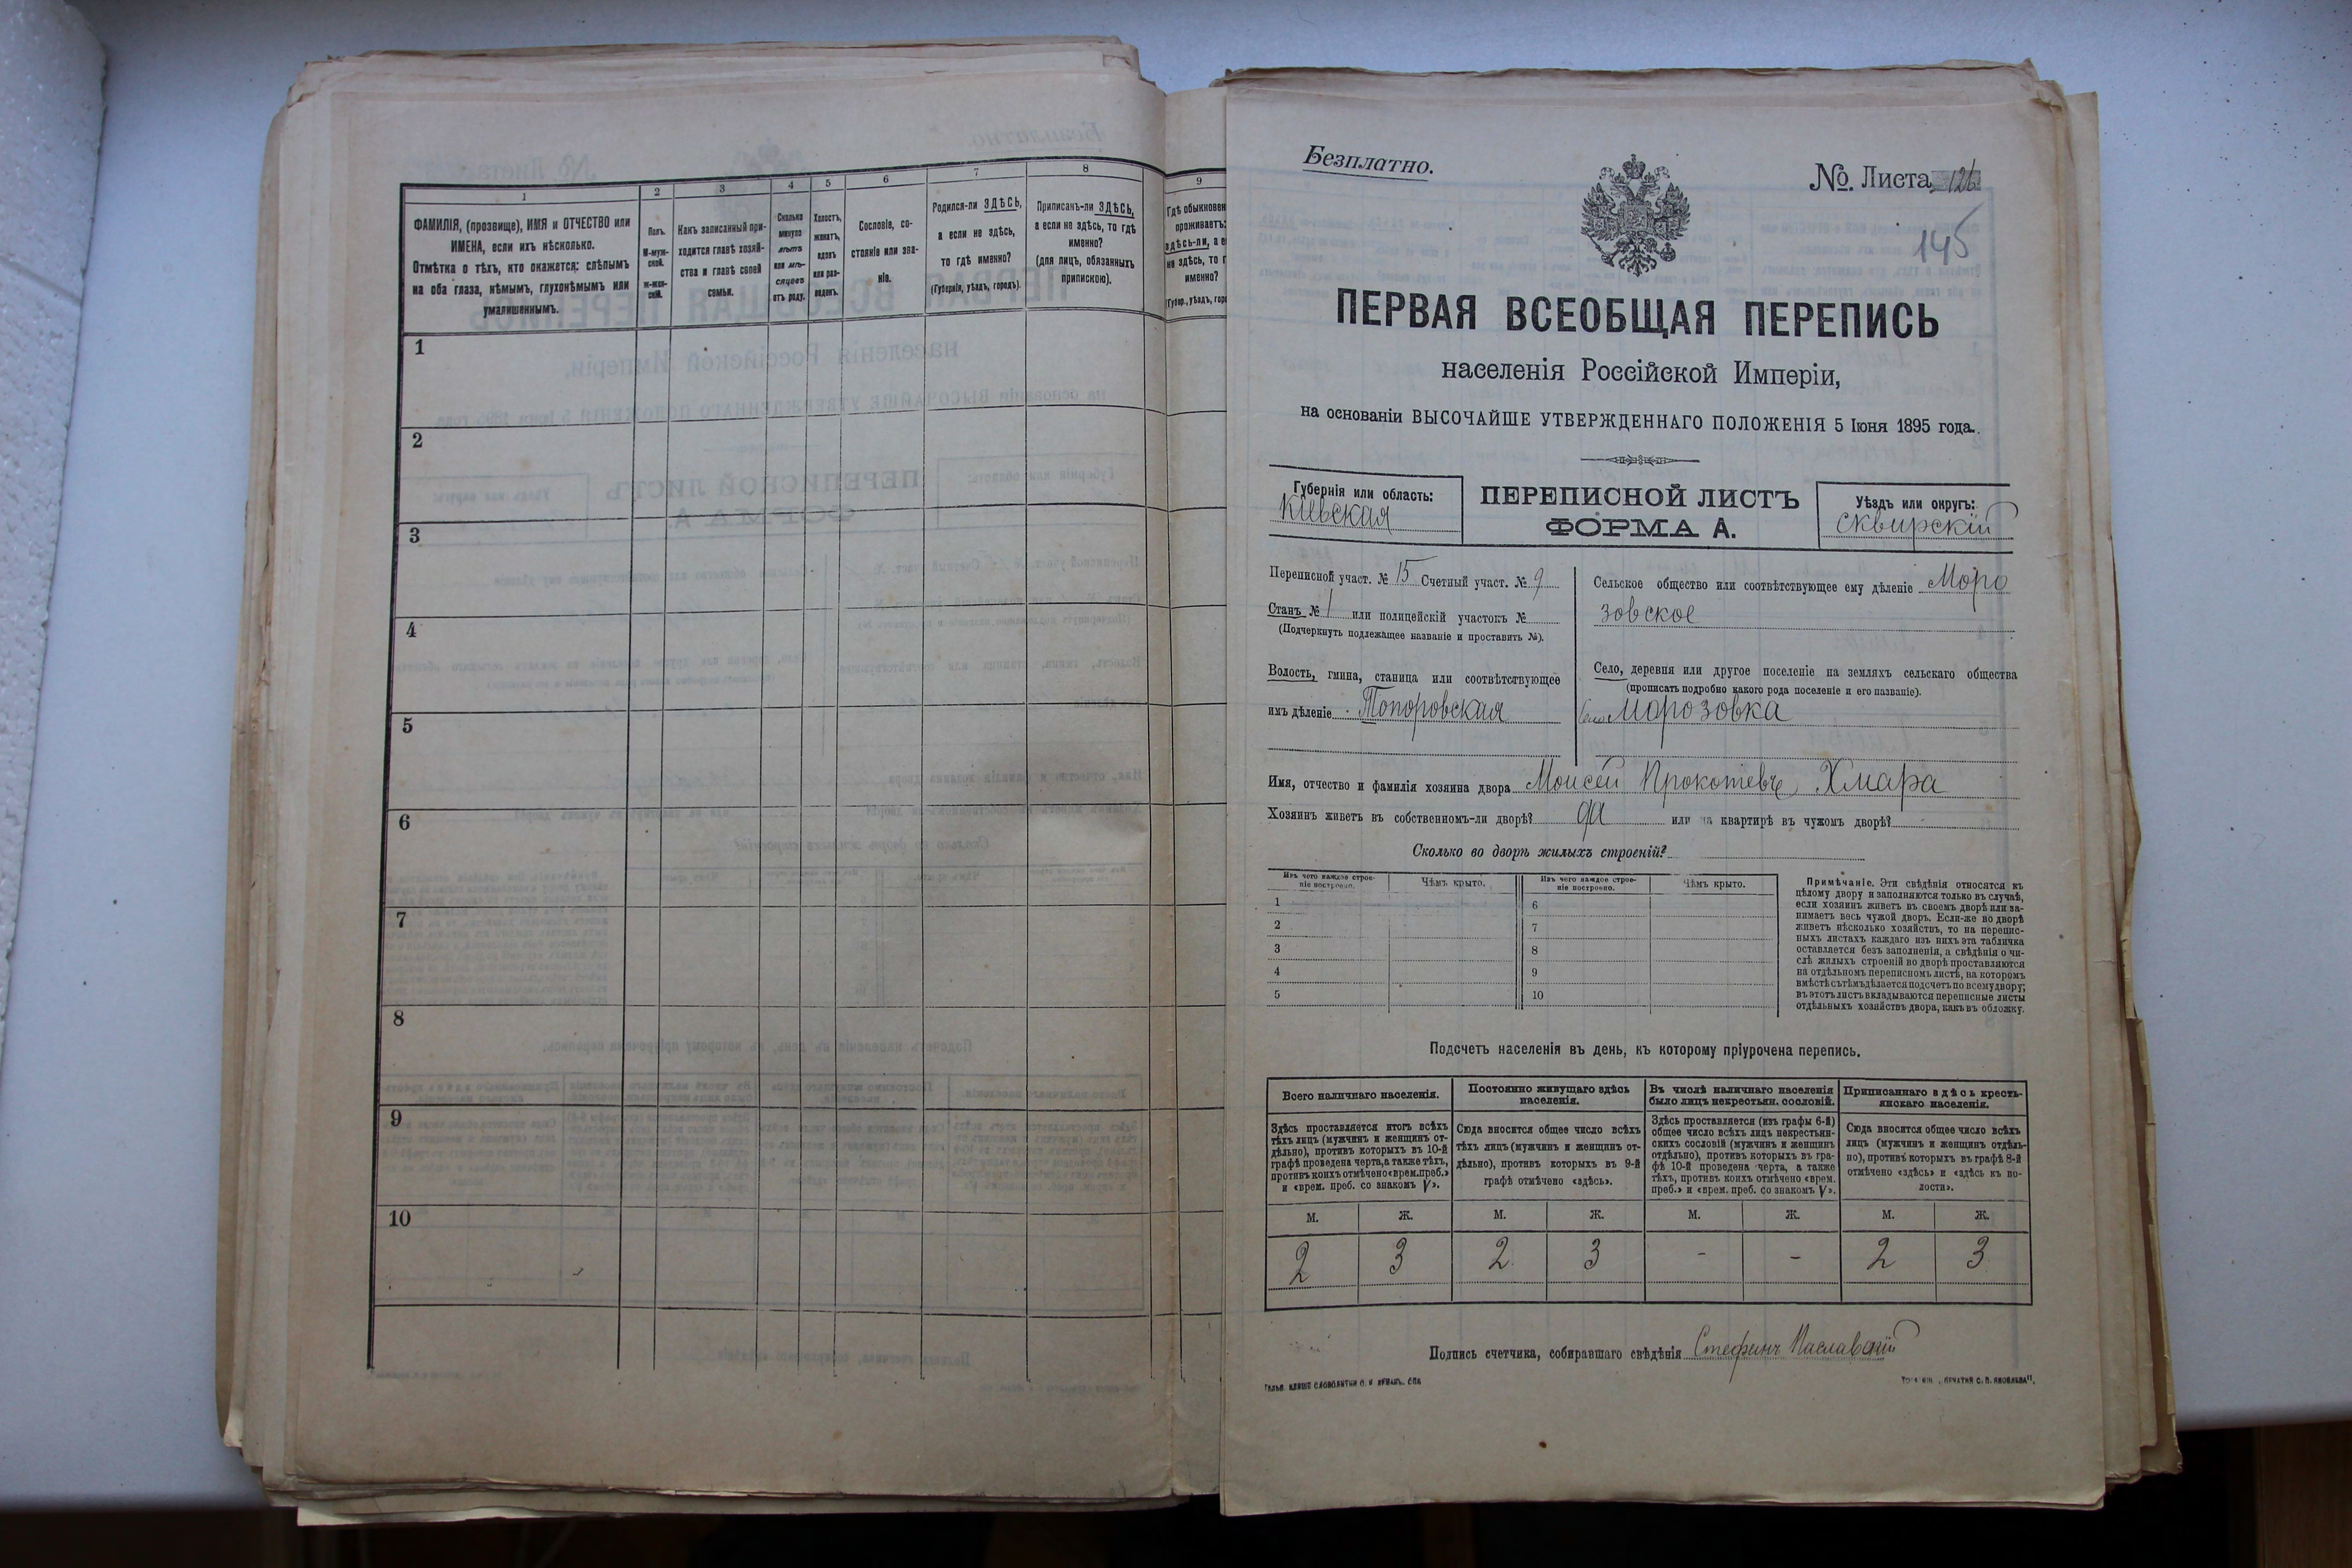 1
2
3
4
5
6
7
8
9
ФАМИЛІЯ, (прозвище), ИМЯ и ОТЧЕСТВО или
ИМЕНА, если ихъ нѣсколько.
Отмѣтка о тѣхъ, кто окажется: слѣпымъ
на оба глаза, нѣмымъ, глухонѣмымъ или
умалишеннымъ.
Полъ.
М-муж-
ской.
ж-жен-
скій.
Какъ записанный при-
ходится главѣ хозяй-
ства и главѣ своей
семьи.
Сколько
минуло
лѣтъ
или мѣ-
сяцевъ
отъ роду.
Холостъ,
женатъ,
вдовъ
или раз-
веденъ.
Сословіе, со-
стояніе или зва-
ніе.
Родился-ли ЗДѢСЬ,
а если не здѣсь,
то гдѣ именно?
(Губернія, уѣздъ, городъ).
Приписанъ-ли ЗДѢСЬ,
а если не здѣсь, то гдѣ
именно?
(для лицъ, обязанныхъ
припискою).
Гдѣ обыкновен
проживаетъ:
здѣсь-ли, а е
не здѣсь, то г
именно?
(Губер., уѣздъ, горо
1
2
3
4
5
6
7
8
9
10
Безплатно.
№. Листа 126
145
ПЕРВАЯ ВСЕОБЩАЯ ПЕРЕПИСЬ
населенія Россійской Имперіи,
на основаніи ВЫСОЧАЙШЕ УТВЕРЖДЕННАГО ПОЛОЖЕНІЯ 5 Іюня 1895 года.
Губернія или область:
Кіевская
ПЕРЕПИСНОЙ ЛИСТЪ
ФОРМА А.
Уѣздъ или округъ:
Сквирскій
Переписной участ. № 15 Счетный участ. № 9
Станъ № 1 или полицейскій участокъ №
(Подчеркнуть подлежащее названіе и проставить №).
Волость, гмина, станица или соотвѣтствующее
имъ дѣленіе Топоровская
Сельское общество или соотвѣтствующее ему дѣленіе Моро
зовское
Село, деревня или другое поселеніе на земляхъ сельскаго общества
(прописать подробно какого рода поселеніе и его названіе).
Село Морозовка
Имя, отчество и фамилія хозяина двора Моисей Прокопіевъ Хмара
Хозяинъ живетъ въ собственномъ-ли дворѣ? да или на квартирѣ въ чужомъ дворѣ?
Сколько во дворѣ жилыхъ строеній?
Изъ чего каждое строе-
ніе построено.
Чѣмъ крыто.
Изъ чего каждое строе-
ніе построено.
Чѣмъ крыто.
1
2
3
4
5
6
7
8
9
10
Примѣчаніе. Эти свѣдѣнія относятся къ
цѣлому двору и заполняются только въ случаѣ,
если хозяинъ живетъ въ своемъ дворѣ или за-
нимаетъ весь чужой дворъ. Если-же во дворѣ
живетъ нѣсколько хозяйствъ, то на перепис-
ныхъ листахъ каждаго изъ нихъ эта табличка
оставляется безъ заполненія, а свѣдѣнія о чи-
слѣ жилыхъ строеній во дворѣ проставляются
на отдѣльномъ переписномъ листѣ, на которомъ
вмѣстѣ съ тѣмъ дѣлается подсчетъ по всему двору;
въ этотъ листъ вкладываются переписные листы
отдѣльныхъ хозяйствъ двора, какъ въ обложку.
Подсчетъ населенія въ день, къ которому пріурочена перепись.
Всего наличнаго населенія.
Здѣсь проставляется итогъ всѣхъ
тѣхъ лицъ (мужчинъ и женщинъ от-
дѣльно), противъ которыхъ въ 10-й
графѣ проведена черта, а также тѣхъ,
противъ коихъ отмѣчено «врем. преб.»
и «врем. преб. со знакомъ V».
Постоянно живущаго здѣсь
населенія.
Сюда вносится общее число всѣхъ
тѣхъ лицъ (мужчинъ и женщинъ от-
дѣльно), противъ которыхъ въ 9-й
графѣ отмѣчено «здѣсь».
Въ числѣ наличнаго населенія
было лицъ некрестьян. сословій.
Здѣсь проставляется (изъ графы 6-й)
общее число всѣхъ лицъ некрестьян-
скихъ сословій (мужчинъ и женщинъ
отдѣльно), противъ которыхъ въ гра-
фѣ 10-й проведена черта, а также
тѣхъ, противъ коихъ отмѣчено «врем.
преб.» и «врем. преб. со знакомъ V».
Приписаннаго здѣсь кресть-
янскаго населенія.
Сюда вносится общее число всѣхъ
лицъ (мужчинъ и женщинъ отдѣль-
но), противъ которыхъ въ графѣ 8-й
отмѣчено «здѣсь» и «здѣсь къ во-
лости».
М. Ж. М. Ж. М. Ж. М. Ж.
2 3 2 3 - - 2 3
Подпись счетчика, собиравшаго свѣдѣнія